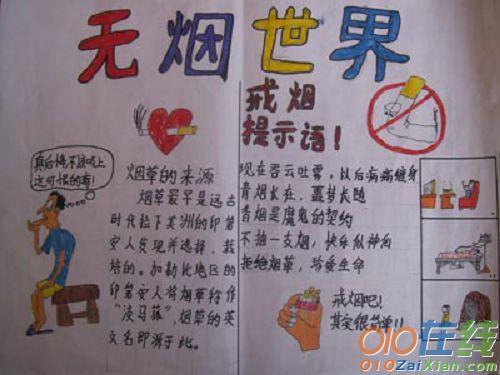 无烟世界
戒烟
提示语！
真后悔不该吸上
这可恨的毒！
烟草的来源
烟草最早是远古
时代拉丁美洲的印第
安人发现并选择、栽
培的。加勒比地区的
印第安人将烟草称作
“淡马菰”，烟草的英
文名即源于此。
现在吞云吐雾，以后病病缠身
青烟长在，噩梦长随
青烟是魔鬼的契约
不抽一支烟，快乐似神仙
拒绝烟草，珍爱生命
戒烟吧！
其实很简单！！
010在线
010ZaiXian.com